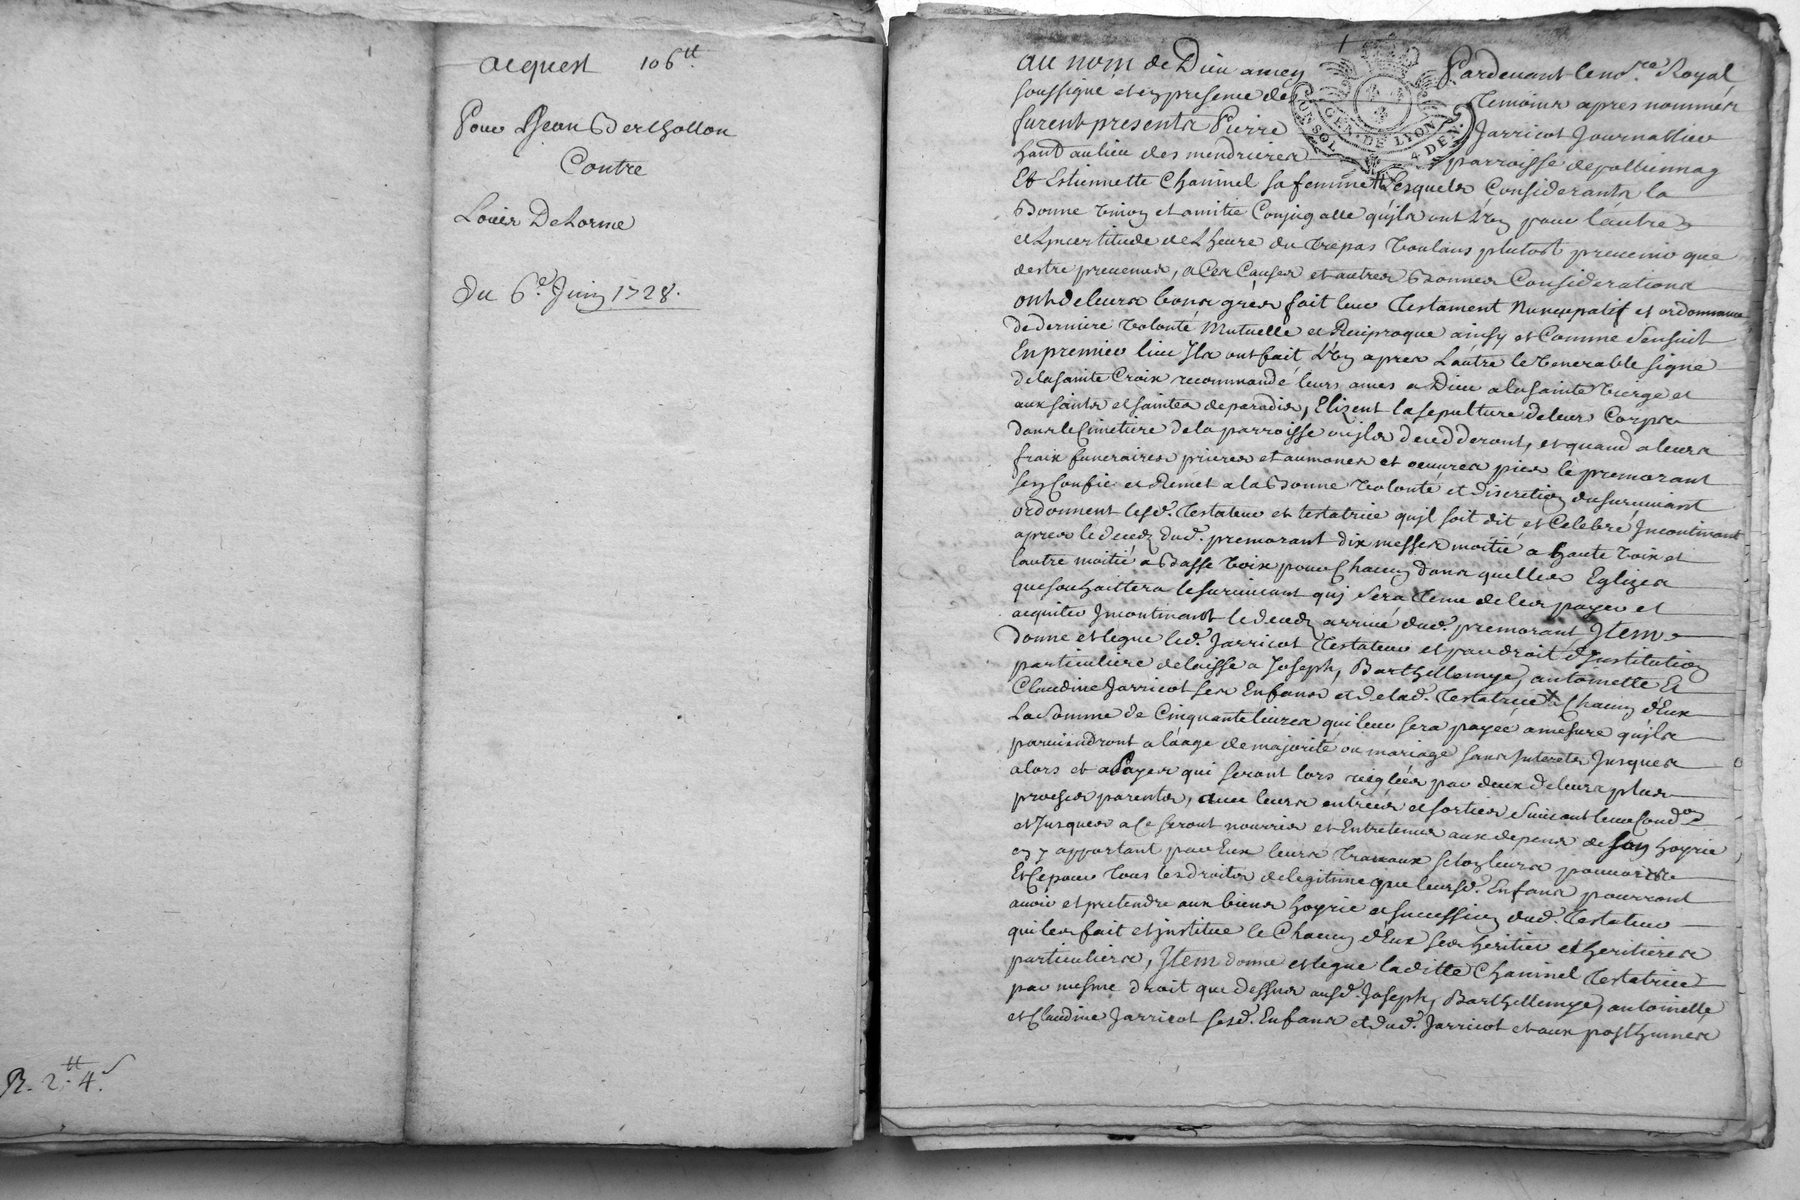 acquest 106tt
Pour Jean Berthollon
Contre
Louis Delorme
du 6e. Juin 1728.
R. 2tt. 4s
au nom de Dieu amen Pardevant le nore Royal
soussigné et en presence des temoins apres nommés
furent presents Pierre Jarricot Journallier
hant au lieu des mendrieres parroisse de pollionnay
Et Estiennette Chaninel sa femme Lesquels Considerants la
Bonne Union et amitié Conjugalle qu'jls ont L'un pour l'autre
et Lincertitude de L'heure du trepas Voulans plutost prevenir que
destre prevenus, a Ces Causes et autres Bonnes Considerations
ont de leurs bons grés fait leur Testament Nuncupatif et ordonnance
de derniere Volonté Mutuelle et Reciproque ainsy et Comme Sensuit
En premier lieu Jls ont fait L'un apres Lautre le Venerable signe
de la sainte Croix recommandé leurs ames a Dieu a la sainte Vierge et
aux saints et saintes de paradis, Elizent la sepulture de leur Corps
dans le Cimetiere de la parroisse ou jls decedderont, et quand a leurs
fraix funeraires prieres et aumones et oeuvres pies le premorant
sen Confie et Remet a la Bonne Volonté et discretion du survivant
ordonnent lesd. Testateur et testatrice qujl soit dit et Celebré Jncontinant
apres le decedz dud. premorant dix messes moitié a haute Voix et
lautre moitié a Basse Voix pour Chacun dans quelles Eglizes
que souhaittera le survivant quj sera tenu de les payer et
acquiter Jncontinant le decedz arrivé dud. premorant Jtem
donne et legue led. Jarricot Testateur et par droit d'Jnstitution
particuliere delaisse a Joseph, Barthellemye, antoinette Et
Claudine Jarricot ses Enfans et de lad. Testatrice x Chacun d'Eux
La Somme de Cinquante livres qui leur sera payée amesure qujls
parviendront a l'aage de majorité ou mariage sans Jnterets Jusques
alors et a payes qui seront lors reglées par deux de leurs plus
proches parents, avec leurs entrées et sorties Suivant leur Condon
et Jusques a Ce seront nourris et Entretenus aux depens de son hoyrie
en y apportant par Eux leurs travaux selon leurs pouvoirs
Et Ce pour tous les droits de legitime que leursd. Enfans pourront
avoir et pretendre aux biens hoyrie et succession dud. Testateur
qui les fait et jnstitue le Chacun d'Eux ses heritier et heritieres
particuliers, Jtem donne et legue laditte Chaninel Testatrice
par mesme droit que dessus ausd. Joseph, Barthellemye, antoinette
et Claudine Jarricot sesd. Enfans et dud. Jarricot et aux posthumes
GEN. DE LYON
4 DEN.